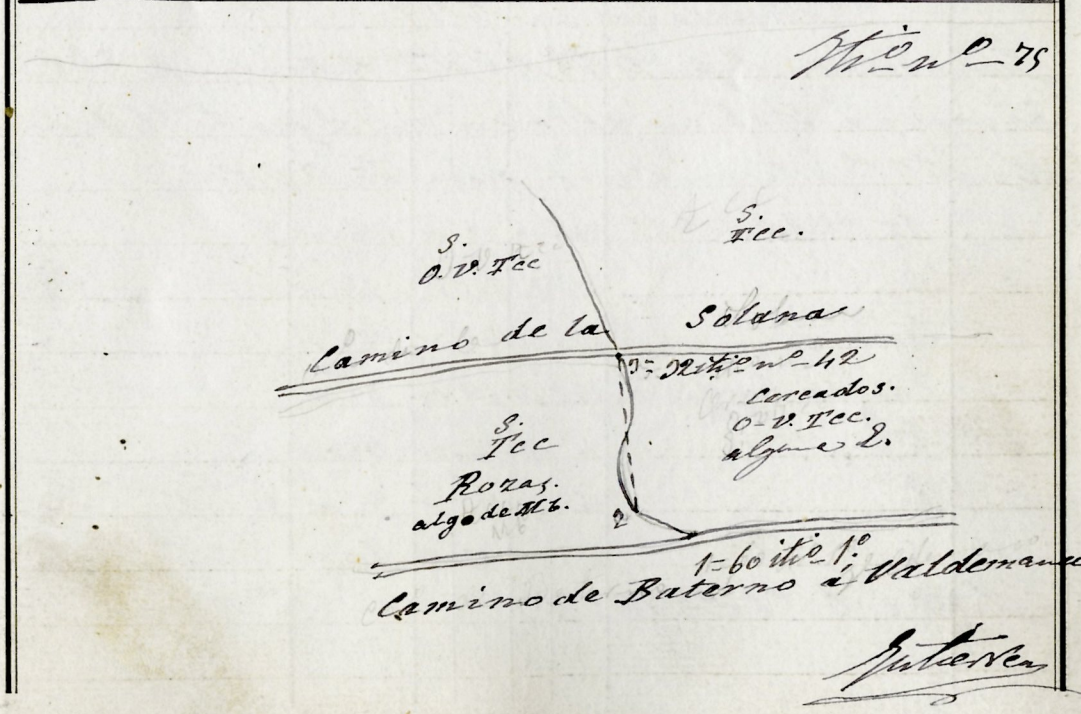 Itiº nº - 75
S.
O. V. Tcc
S.
Tcc.
Camino de la Solana
3 = 32 itiº nº - 42
Cercados.
O - V. Tcc.
alguna E.
S.
Tcc
Rozas.
algo de Mb.
2
1 = 60 itiº 1º
Camino de Baterno á Valdemanco
Gutierrez